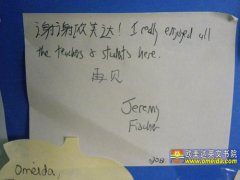 谢谢欧美达! I really enjoyed all
the teachers & students here.
再见
Jeremy
Fischer
Omeida,
欧美达英文书院
www.omeida.com.cn